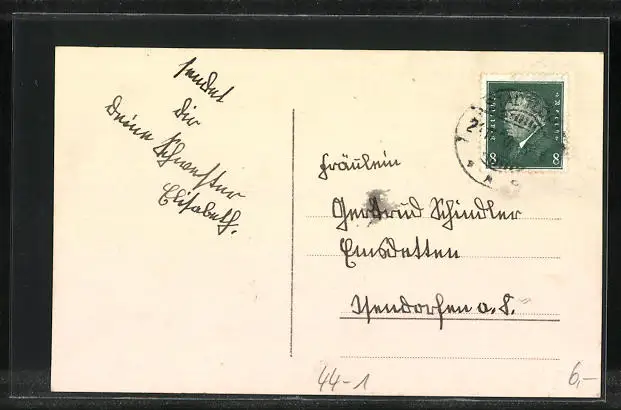 sendet
Dir
Deine Schwester
Elisabeth.
8 8
Fräulein
Gertrud Schindler
Emsdetten
44-1
6,-